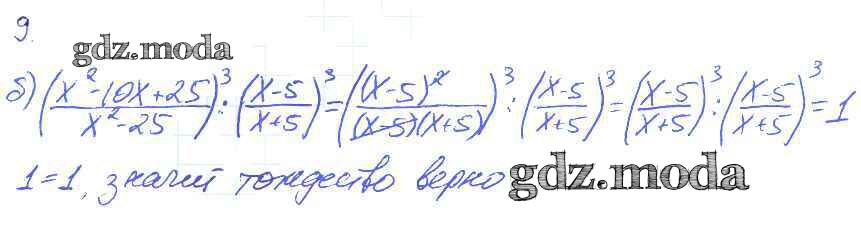 9.
gdz.moda
б) ((x²-10x+25)/(x²-25))³ : ((x-5)/(x+5))³ = ((x-5)²/((x-5)(x+5)))³ : ((x-5)/(x+5))³ = ((x-5)/(x+5))³ : ((x-5)/(x+5))³ = 1
1=1, значит тождество верно
gdz.moda